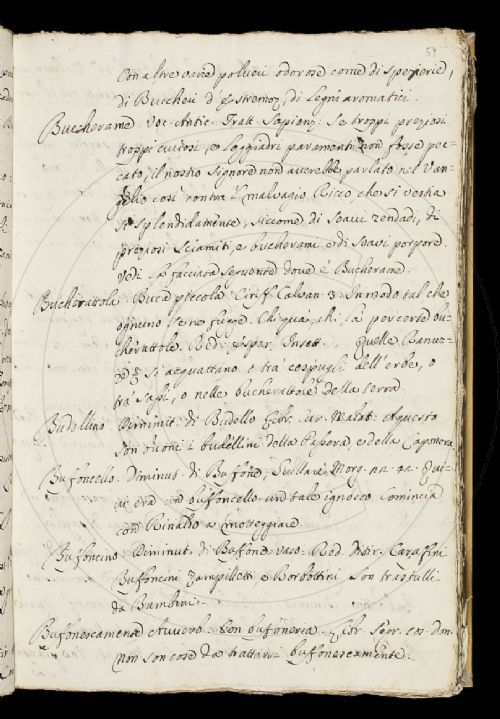 59
con altre varie polveri odorose come di spezierie,
di Buccheri d'Estremoz, di Legni aromatici.
Bucherame. Voc. Antic. Tratt. Sapienz: Se troppi preziosi
troppi curiosi, e leggiadri paramenti non fosse pec-
cato, il nostro Signore non averebbe parlato nel Van-
gelio così contra 'l malvagio Ricco, che si vestia
sì splendidamente, siccome di soavi zendadi, di
preziosi sciamiti, e bucherami, e di soavi porpore.
Vedi la facciata seguente dove è Bucherame.
Bucherattola. Buca piccola. Ciriff. Calvan. 3. In modo tal che
ognuno se ne fugge. Chi quà, chi là per certe bu-
cherattole. Red. Esper. Insett. Quelle
si acquattano o tra' cespugli dell'erbe, o
tra' sassi, o nelle bucherattole della terra.
Budellino. Diminut. di Budello Libr. cur. Malat: A questo
son buoni i budellini della Passera e della Caponera.
Buffoncello. Diminut. di Buffone, Sust. Morg. Qui-
vi era un buffoncello un tale ignocco Comincia
con Rinaldo a motteggiare.
Buffoncino. Diminut. di Buffone vaso. Red. Ditir. Caraffini
Buffoncini Zampilletti, e Borbottini Son trastulli
da Bambini.
Buffonescamente Avverb. Con buffoneria. Libr. Segr. cos. don.
non son cose da trattarsi buffonescamente.